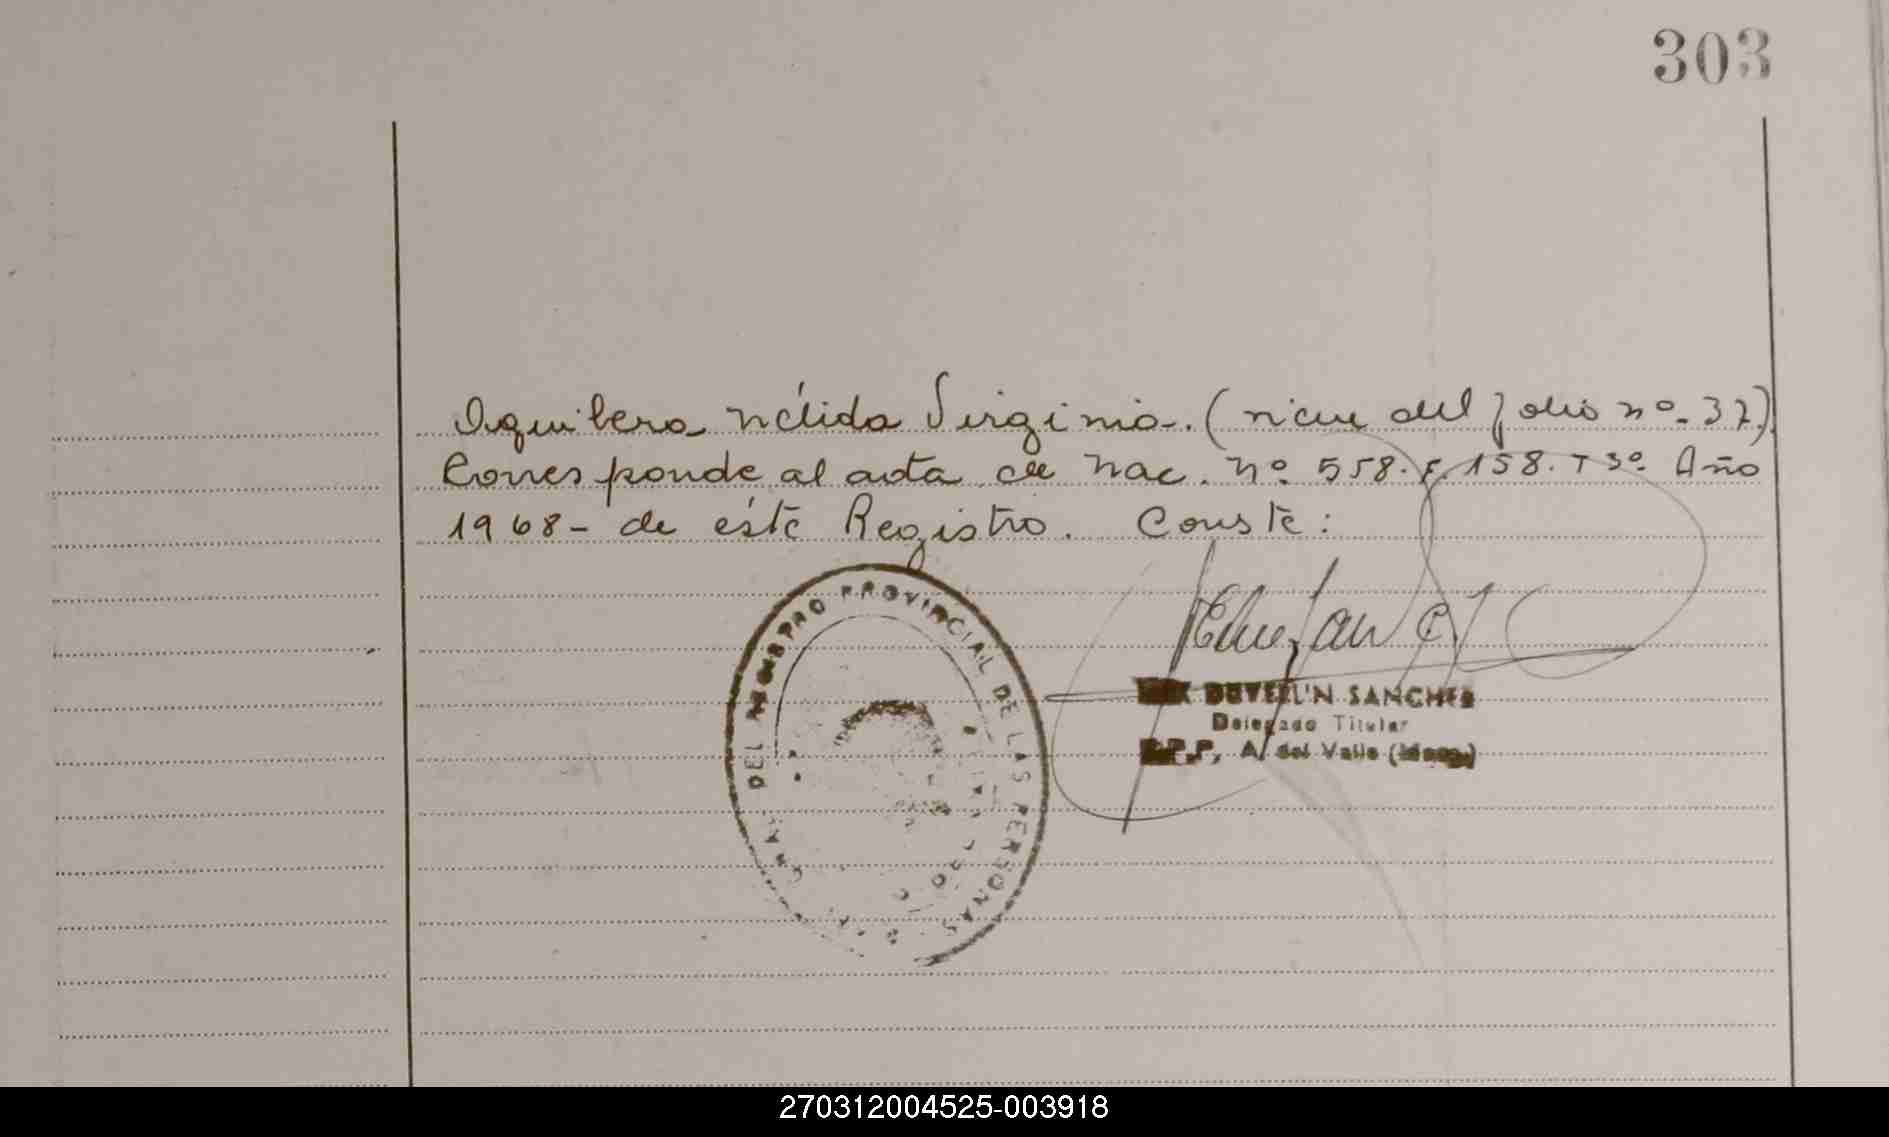 303
Aguilera Nélida Virginia. (viene del folio nº. 37).
Corresponde al acta de Nac. Nº 558. F. 158. T 3º. Año
1968 - de éste Registro. Conste:
DEL REGISTRO PROVINCIAL DE LAS PERSONAS
SANCHEZ
Delegado Titular
R.P.P, A. del Valle
270312004525-003918